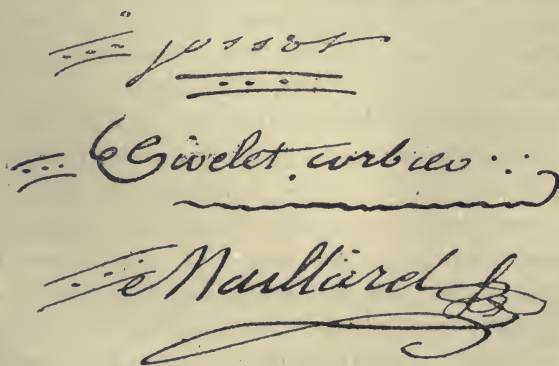 jossot
Givelet. corbieo
Maillard